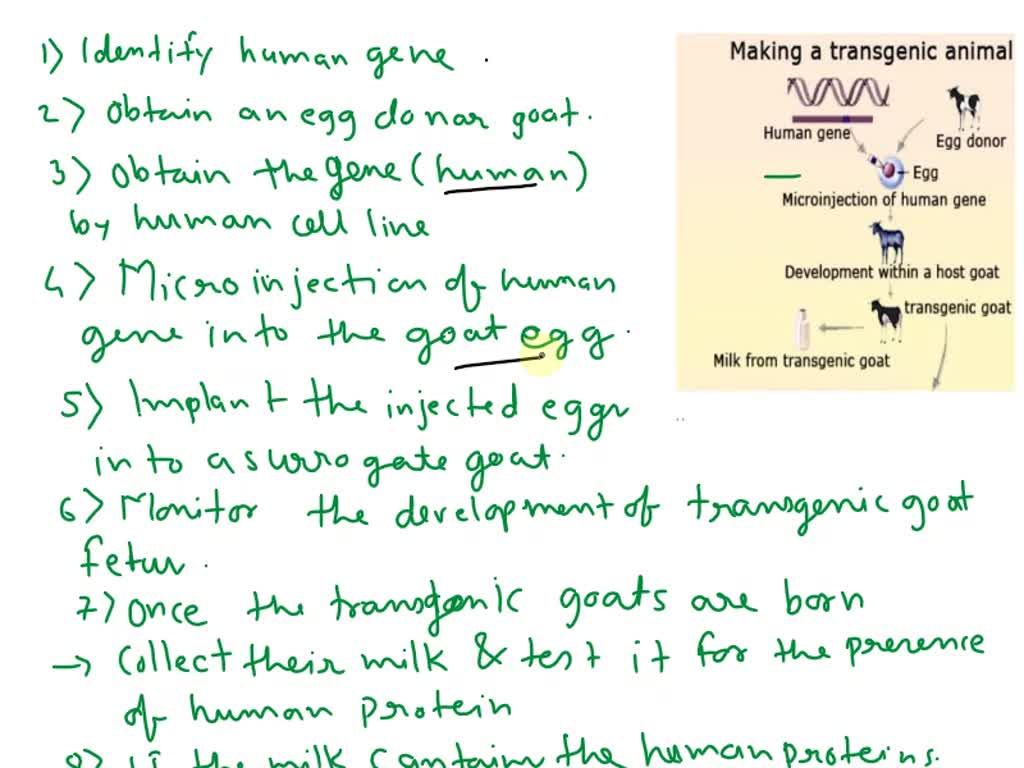 1) Identify human gene.
2) Obtain an egg donar goat.
3) Obtain the gene (human)
by human cell line
4) Micro injection of human
gene into the goat egg.
5) Implant the injected eggs
into a surrogate goat.
6) Monitor the development of transgenic goat
fetus.
7) Once the transgenic goats are born
→ Collect their milk & test it for the presence
of human protein
8) if the milk contain the human proteins.
Making a transgenic animal
Human gene
Egg donor
Egg
Microinjection of human gene
Development within a host goat
transgenic goat
Milk from transgenic goat